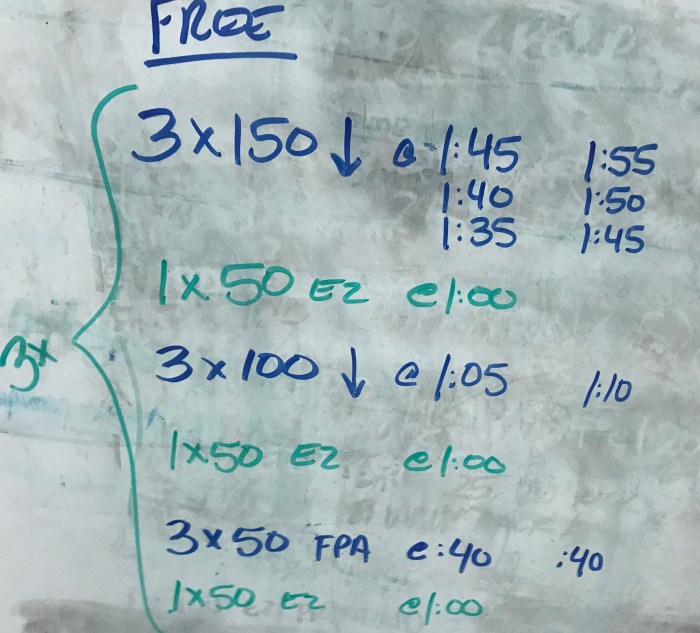 FREE
3x150 ↓ @ 1:45 1:55
1:40 1:50
1:35 1:45
1x50 EZ @1:00
3x
3x100 ↓ @ 1:05 1:10
1x50 EZ @1:00
3x50 FPA @:40 :40
1x50 EZ @1:00